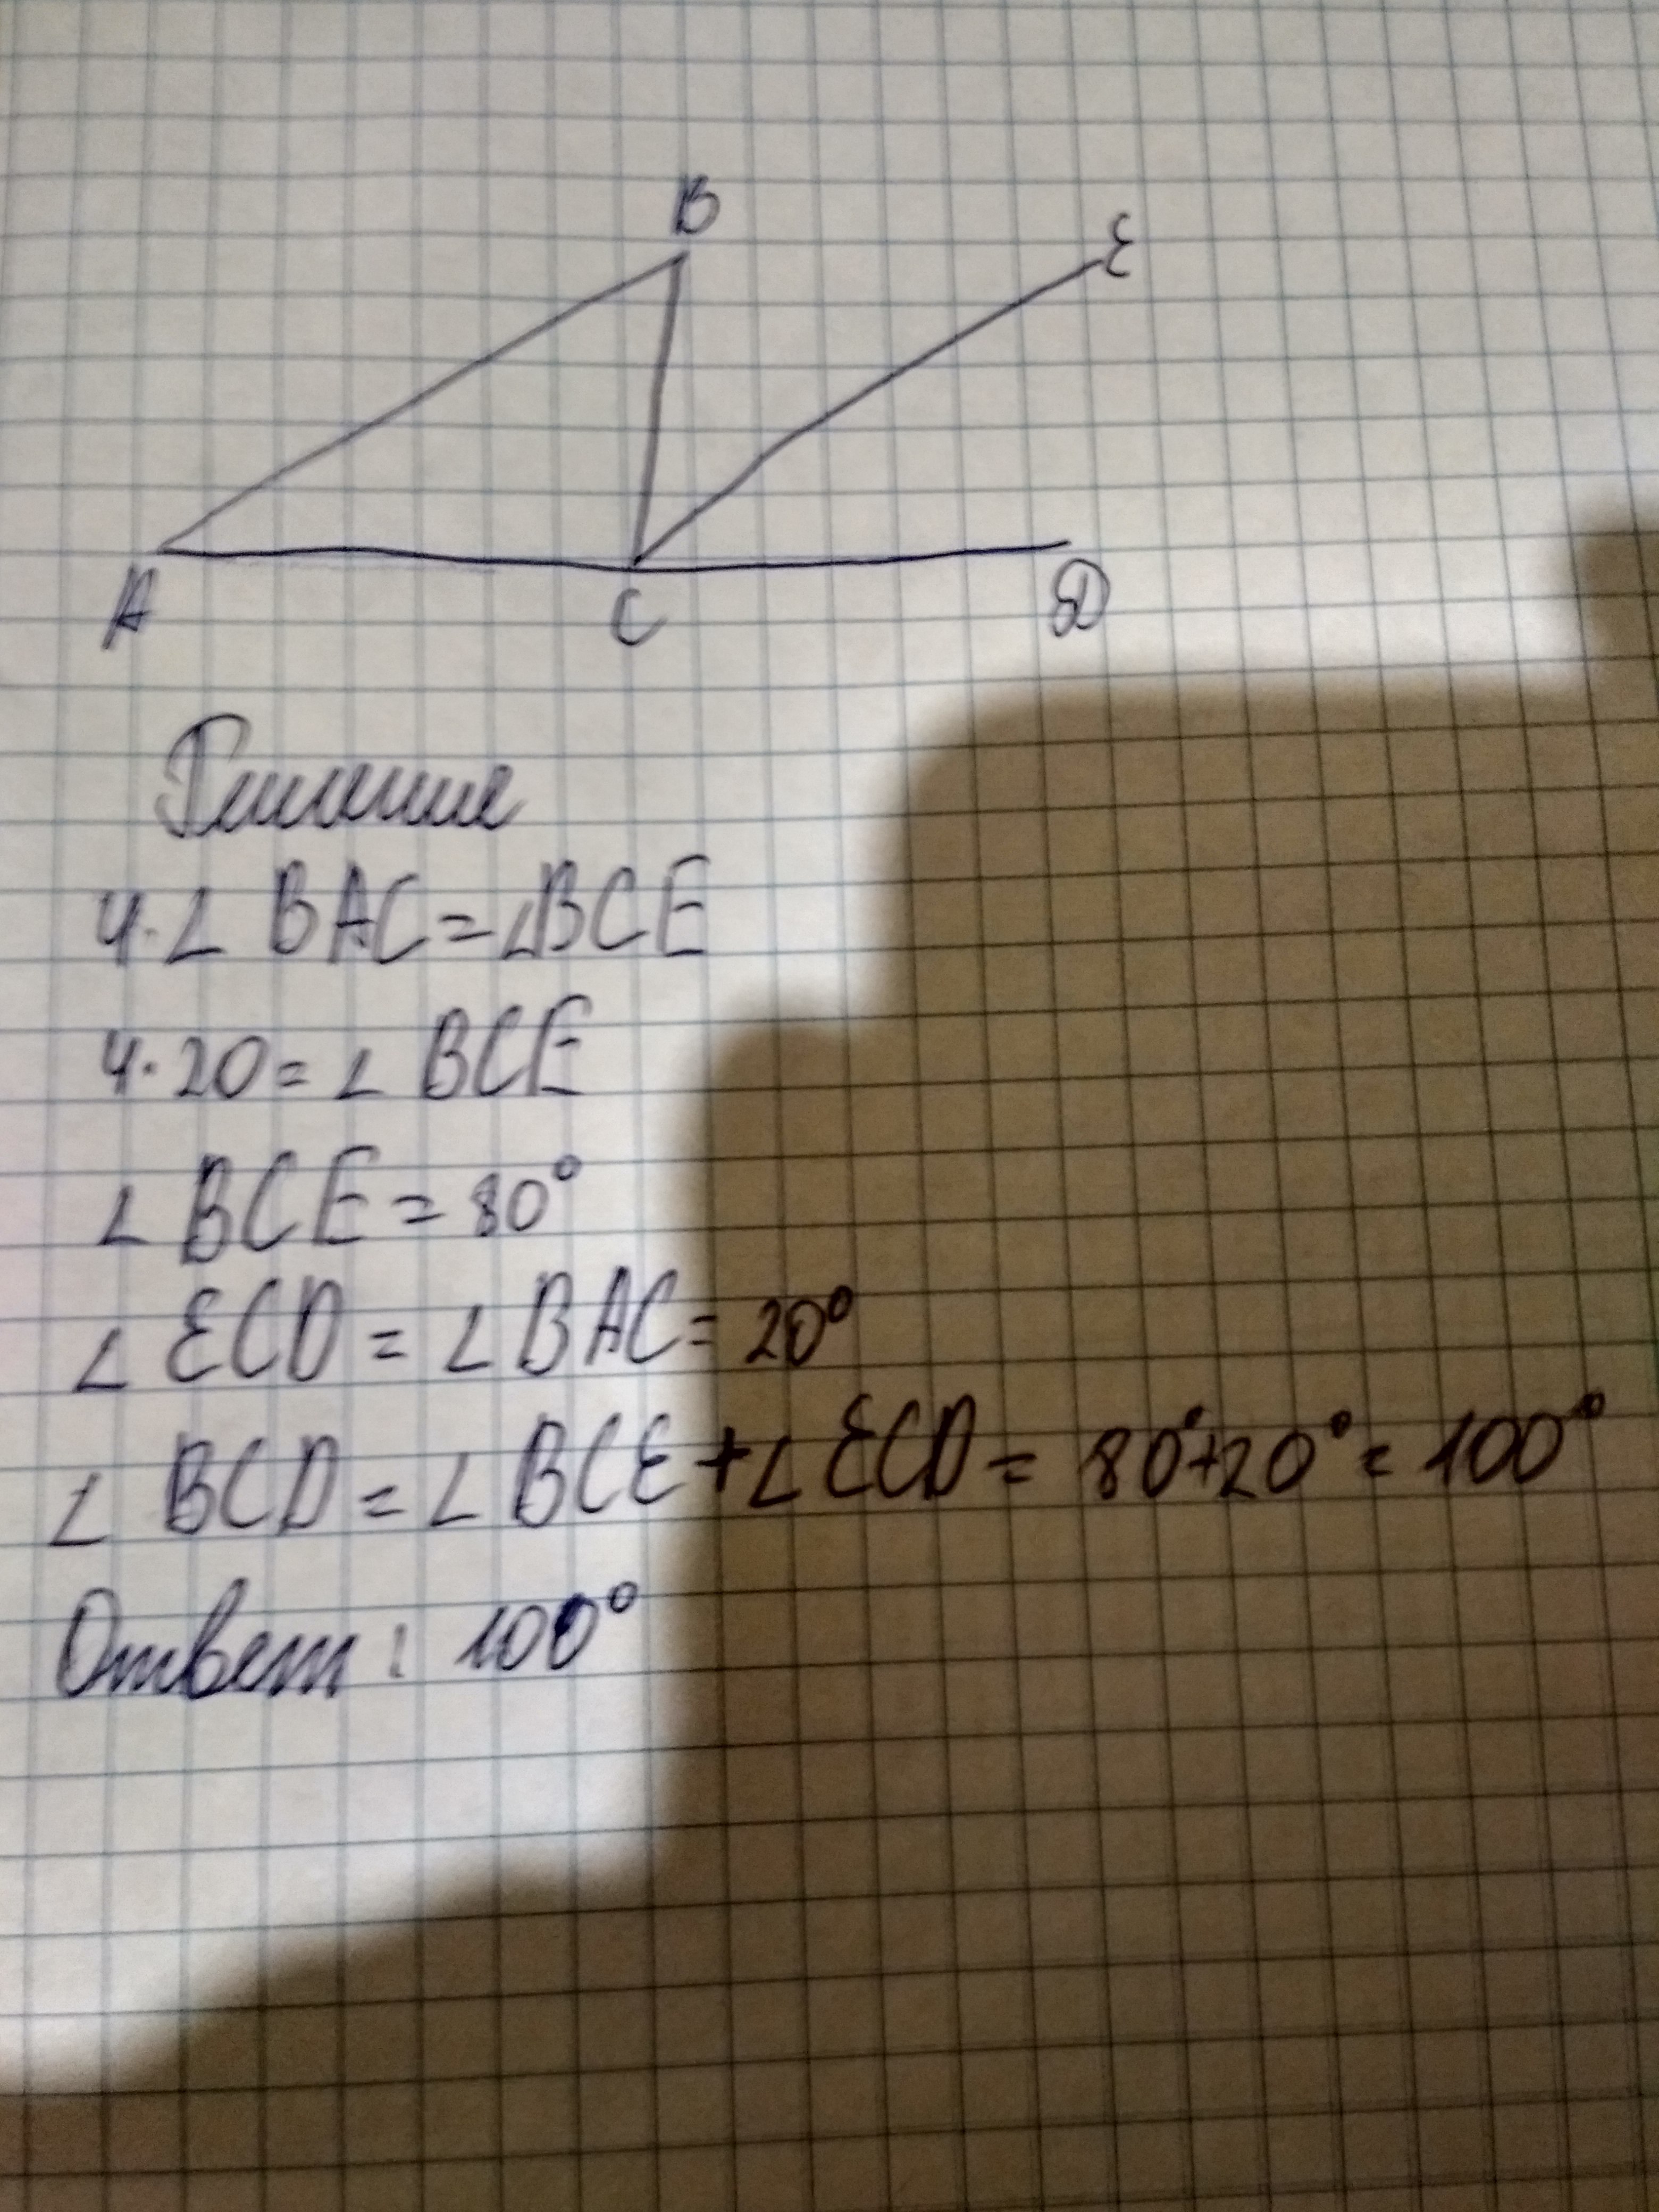 B
E
A
C
D
Решение
4·∠ BAC=∠BCE
4·20=∠ BCE
∠ BCE=80°
∠ ECD=∠BAC=20°
∠ BCD=∠BCE+∠ECD=80°+20°=100°
Ответ: 100°